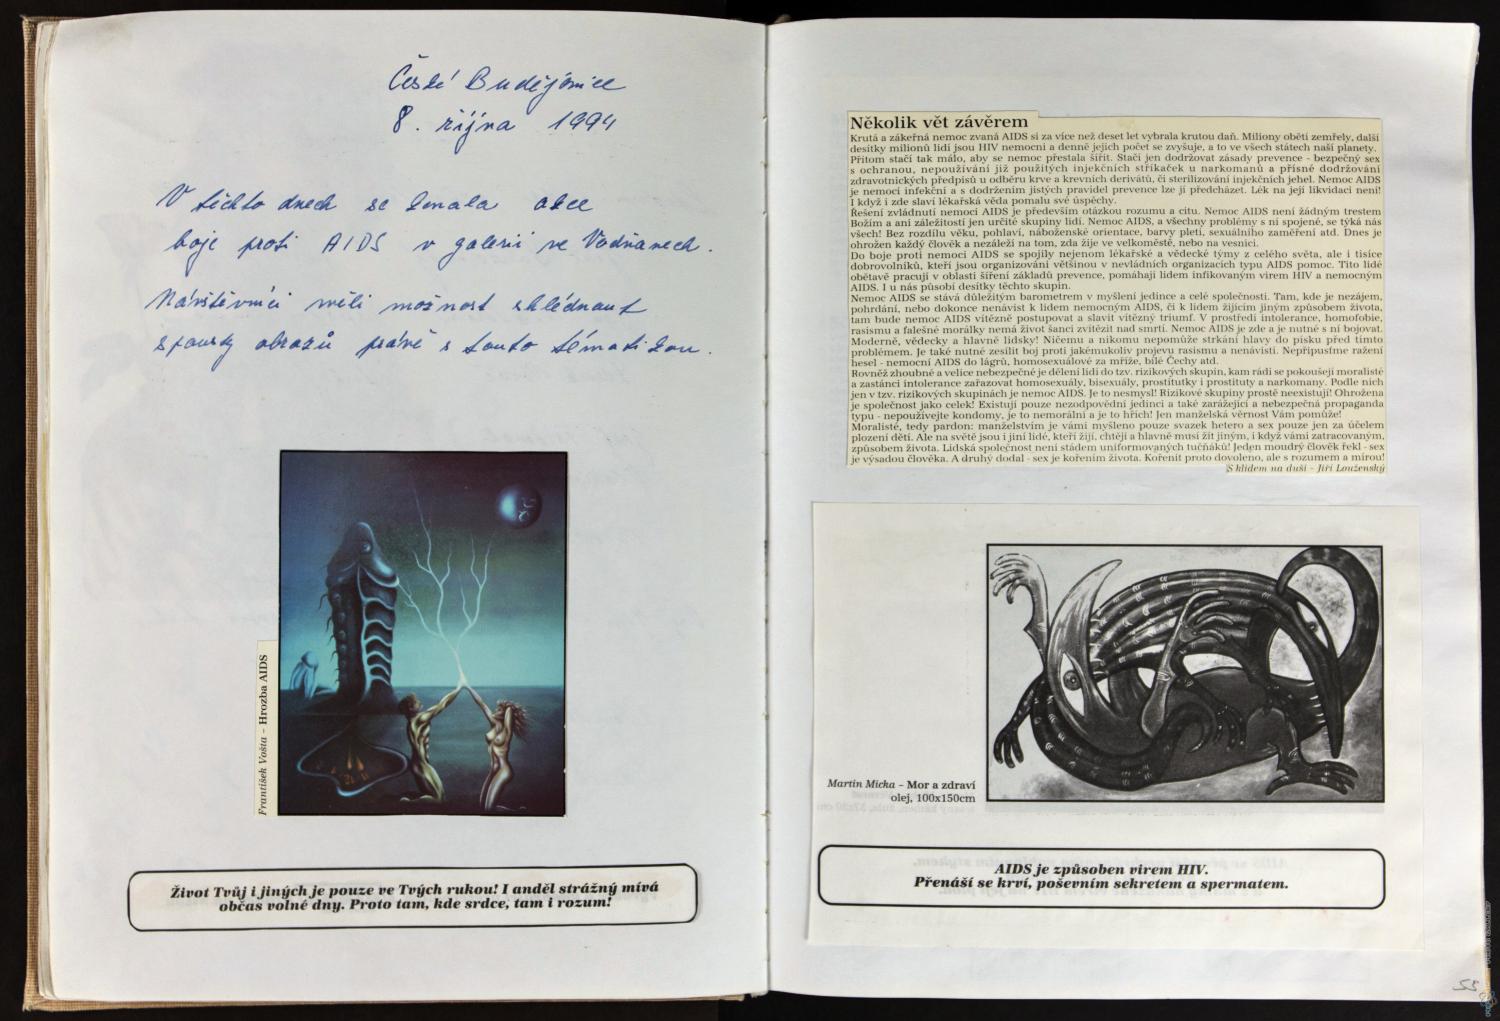 České Budějovice
8. října 1994
V těchto dnech se konala akce
boje proti AIDS v galerii ve Vodňanech.
Návštěvníci měli možnost shlédnout
spousty obrazů právě s touto tématikou.
František Vošta – Hrozba AIDS
Život Tvůj i jiných je pouze ve Tvých rukou! I anděl strážný mívá
občas volné dny. Proto tam, kde srdce, tam i rozum!
Několik vět závěrem
Krutá a zákeřná nemoc zvaná AIDS si za více než deset let vybrala krutou daň. Miliony obětí zemřely, další
desítky milionů lidí jsou HIV nemocni a denně jejich počet se zvyšuje, a to ve všech státech naší planety.
Přitom stačí tak málo, aby se nemoc přestala šířit. Stačí jen dodržovat zásady prevence - bezpečný sex
s ochranou, nepoužívání již použitých injekčních stříkaček u narkomanů a přísné dodržování
zdravotnických předpisů u odběru krve a krevních derivátů, či sterilizování injekčních jehel. Nemoc AIDS
je nemocí infekční a s dodržením jistých pravidel prevence lze jí předcházet. Lék na její likvidaci není!
I když i zde slaví lékařská věda pomalu své úspěchy.
Řešení zvládnutí nemoci AIDS je především otázkou rozumu a citu. Nemoc AIDS není žádným trestem
Božím a ani záležitostí jen určité skupiny lidí. Nemoc AIDS, a všechny problémy s ní spojené, se týká nás
všech! Bez rozdílu věku, pohlaví, náboženské orientace, barvy pleti, sexuálního zaměření atd. Dnes je
ohrožen každý člověk a nezáleží na tom, zda žije ve velkoměstě, nebo na vesnici.
Do boje proti nemoci AIDS se spojily nejenom lékařské a vědecké týmy z celého světa, ale i tisíce
dobrovolníků, kteří jsou organizováni většinou v nevládních organizacích typu AIDS pomoc. Tito lidé
obětavě pracují v oblasti šíření základů prevence, pomáhají lidem infikovaným virem HIV a nemocným
AIDS. I u nás působí desítky těchto skupin.
Nemoc AIDS se stává důležitým barometrem v myšlení jedince a celé společnosti. Tam, kde je nezájem,
pohrdání, nebo dokonce nenávist k lidem nemocným AIDS, či k lidem žijícím jiným způsobem života,
tam bude nemoc AIDS vítězně postupovat a slavit vítězný triumf. V prostředí intolerance, homofobie,
rasismu a falešné morálky nemá život šanci zvítězit nad smrtí. Nemoc AIDS je zde a je nutné s ní bojovat.
Moderně, vědecky a hlavně lidsky! Ničemu a nikomu nepomůže strkání hlavy do písku před tímto
problémem. Je také nutné zesílit boj proti jakémukoliv projevu rasismu a nenávisti. Nepřipusťme ražení
hesel - nemocní AIDS do lágrů, homosexuálové za mříže, bílé Čechy atd.
Rovněž zhoubné a velice nebezpečné je dělení lidí do tzv. rizikových skupin, kam rádi se pokoušejí moralisté
a zastánci intolerance zařazovat homosexuály, bisexuály, prostitutky i prostituty a narkomany. Podle nich
jen v tzv. rizikových skupinách je nemoc AIDS. Je to nesmysl! Rizikové skupiny prostě neexistují! Ohrožena
je společnost jako celek! Existují pouze nezodpovědní jedinci a také zarážející a nebezpečná propaganda
typu - nepoužívejte kondomy, je to nemorální a je to hřích! Jen manželská věrnost Vám pomůže!
Moralisté, tedy pardon: manželstvím je vámi myšleno pouze svazek hetero a sex pouze jen za účelem
plození dětí. Ale na světě jsou i jiní lidé, kteří žijí, chtějí a hlavně musí žít jiným, i když vámi zatracovaným,
způsobem života. Lidská společnost není stádem uniformovaných tučňáků! Jeden moudrý člověk řekl - sex
je výsadou člověka. A druhý dodal - sex je kořením života. Kořenit proto dovoleno, ale s rozumem a mírou!
S klidem na duši - Jiří Louženský
Martin Micka – Mor a zdraví
olej, 100x150cm
AIDS je způsoben virem HIV.
Přenáší se krví, poševním sekretem a spermatem.
55